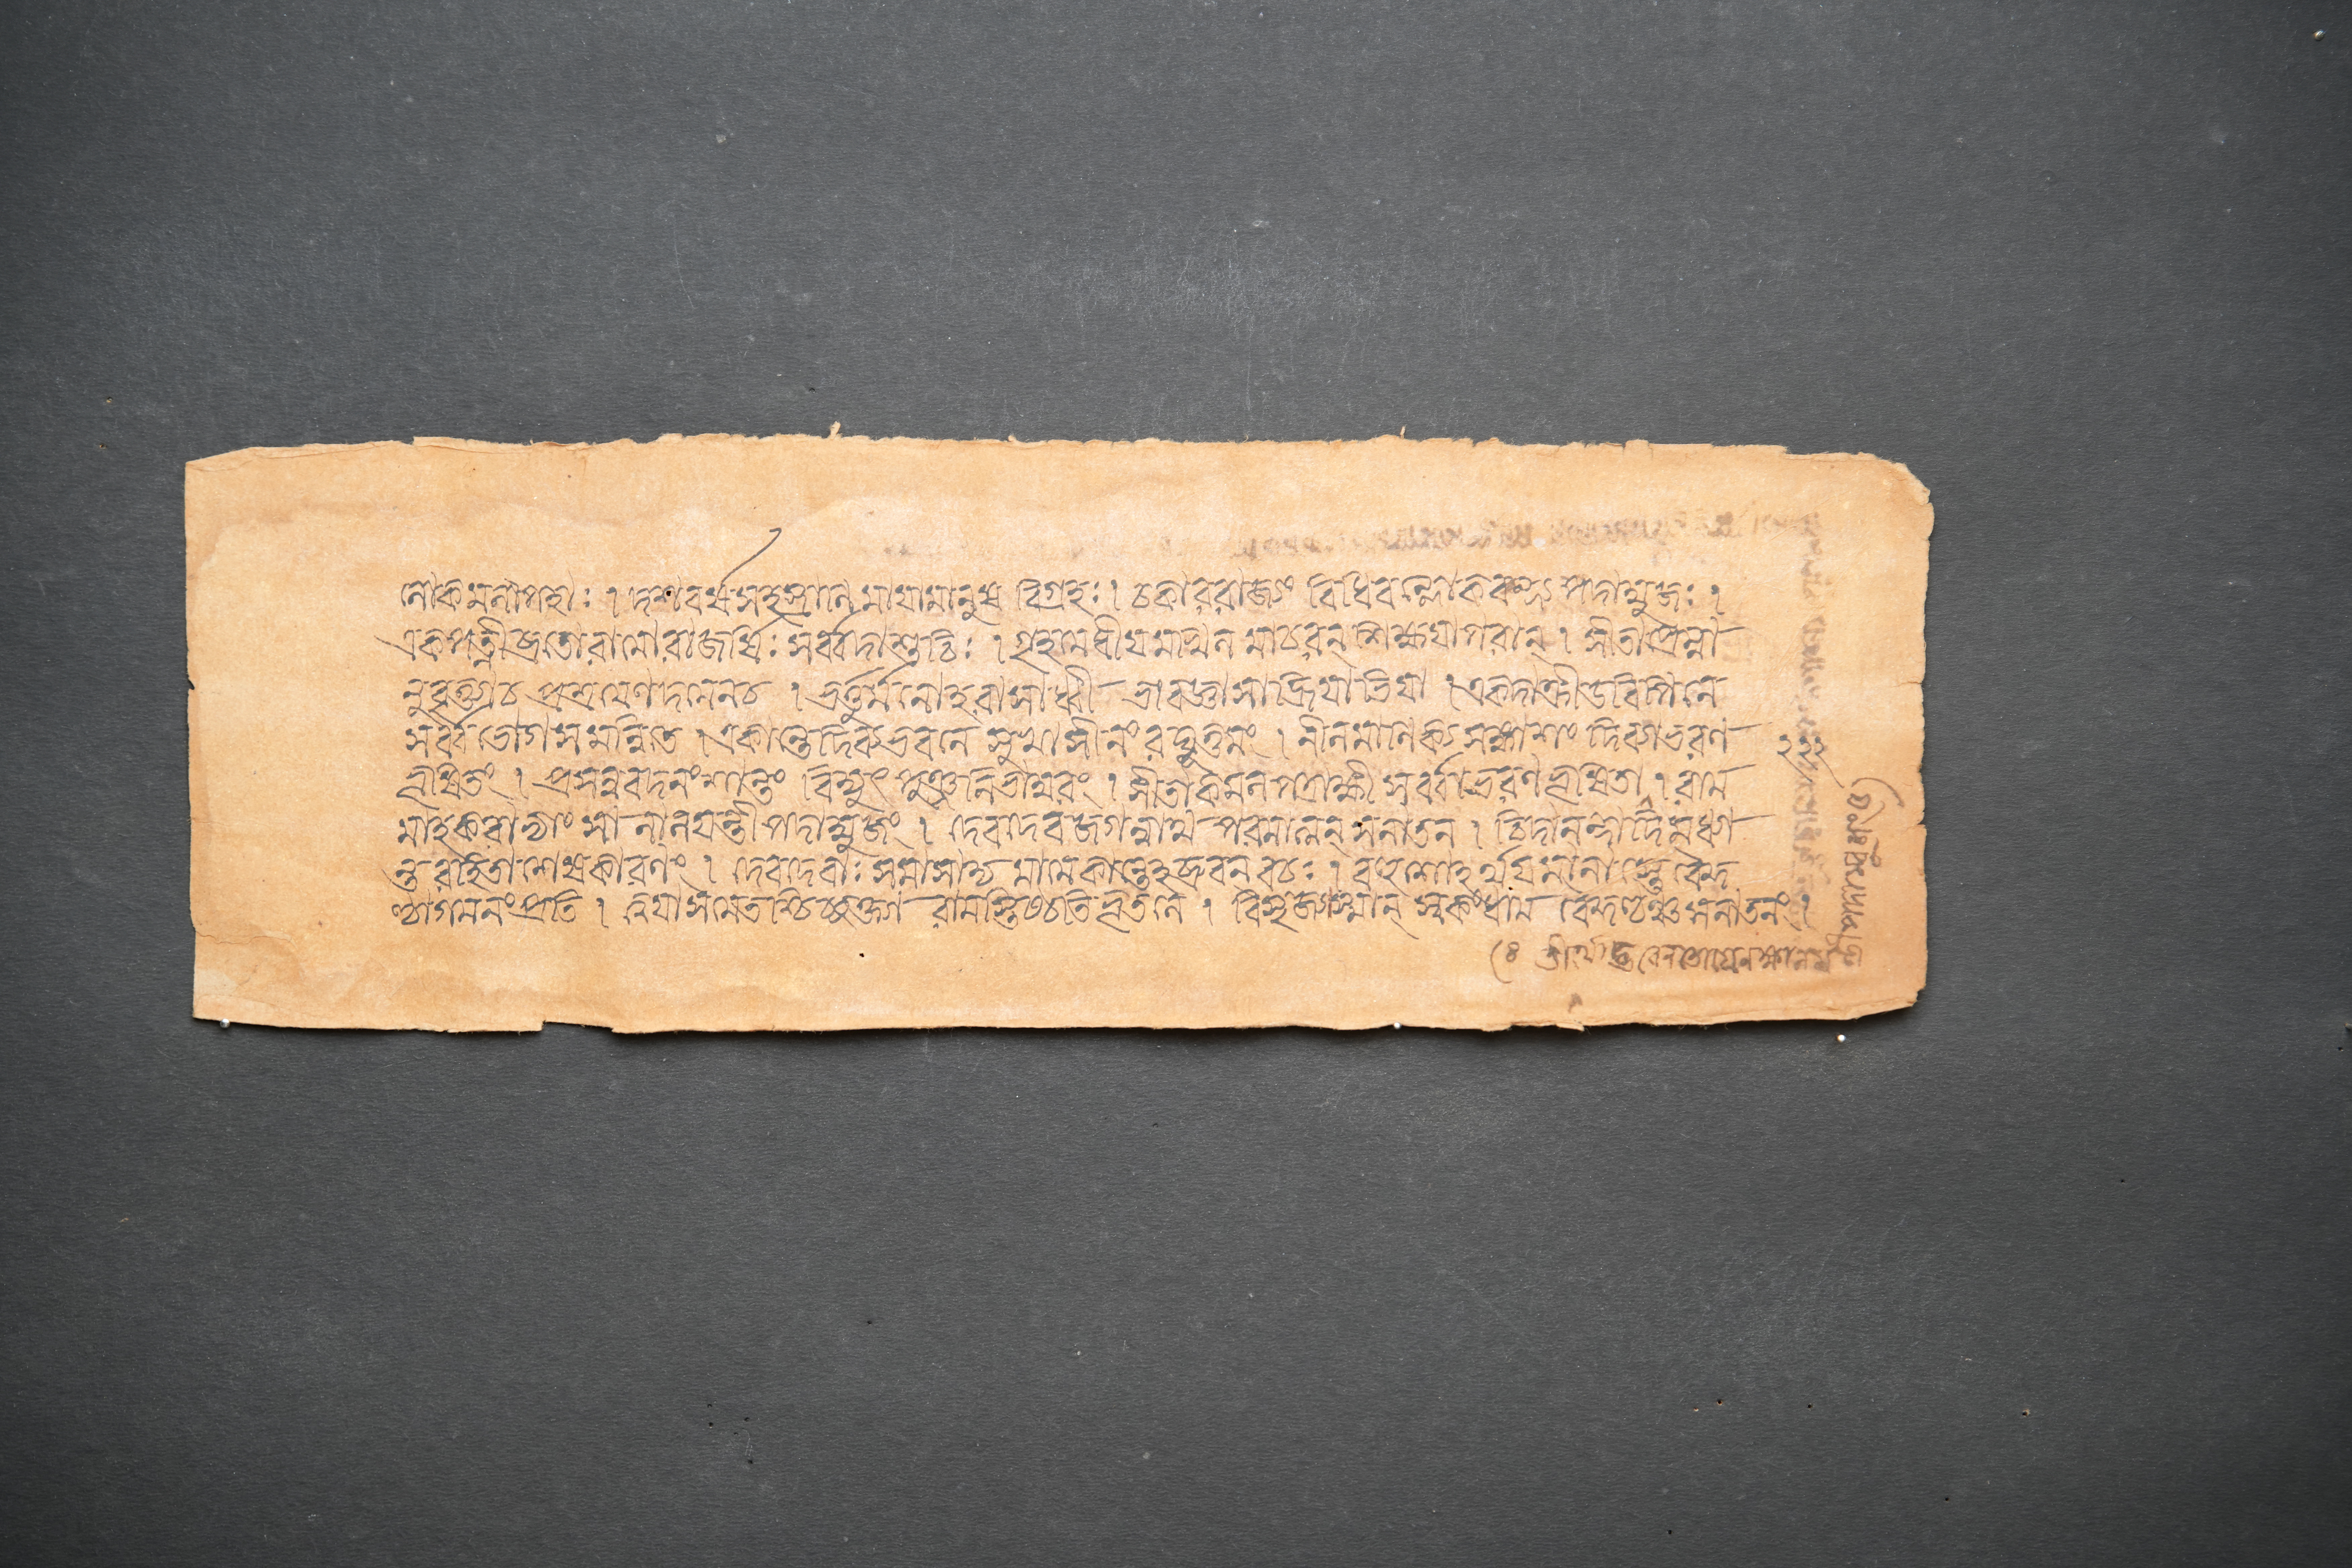 লোকমলাপহাঃ । দশবর্ষসহস্রানি মায়ামানুষ বিগ্রহঃ । চকার রাজ্যং বিধিবল্লোকবন্দ্য পদাম্বুজঃ ।
একপত্নীব্রতো রামো রাজর্ষিঃ সর্ব্বদা শুচিঃ । গৃহমেধীয়মখিল মাচরন্ শিক্ষয়ন্ পরান্ । সীতা প্রেম্না
নুবৃত্ত্যা চ প্রশ্রয়েণ দমেন চ । ভর্ত্তুর্মনোহরা সাধ্বী ভাবজ্ঞা সা হ্রিয়া ভিয়া । একদাক্রীড়বিপিনে
সর্ব্ব ভোগ সমন্বিতে । একান্তে দিব্যভবনে সুখাসীনং রঘুত্তমং । নীলমানিক্য সঙ্কাশং দিব্যাভরণ
ভূষিতং । প্রসন্নবদনং শান্তং বিদ্যুৎ পুঞ্জনিভাম্বরং । সীতা কমলপত্রাক্ষী সর্ব্বাভরণভূষিতা । রাম
মাহ করাভ্যাং সা লালয়ন্তী পদাম্বুজং । দেবদেব জগন্নাথ পরমাত্মন্ সনাতন । চিদানন্দাদিমধ্যা
ন্ত রহিতাশেষকারণং । দেব দেবাঃ সমাসাদ্য মামেকান্তেহব্রুবন্ বচঃ । বহুশোহর্থয়মানাস্তে বৈকু
ণ্ঠাগমনং প্রতি । ত্বয়া সমেতশ্চিচ্ছক্ত্যা রামস্তিষ্ঠতি ভূতলে । বিসৃজ্যাস্মান্ স্বকং ধাম বৈকুণ্ঠঞ্চ সনাতনং ।
২২২